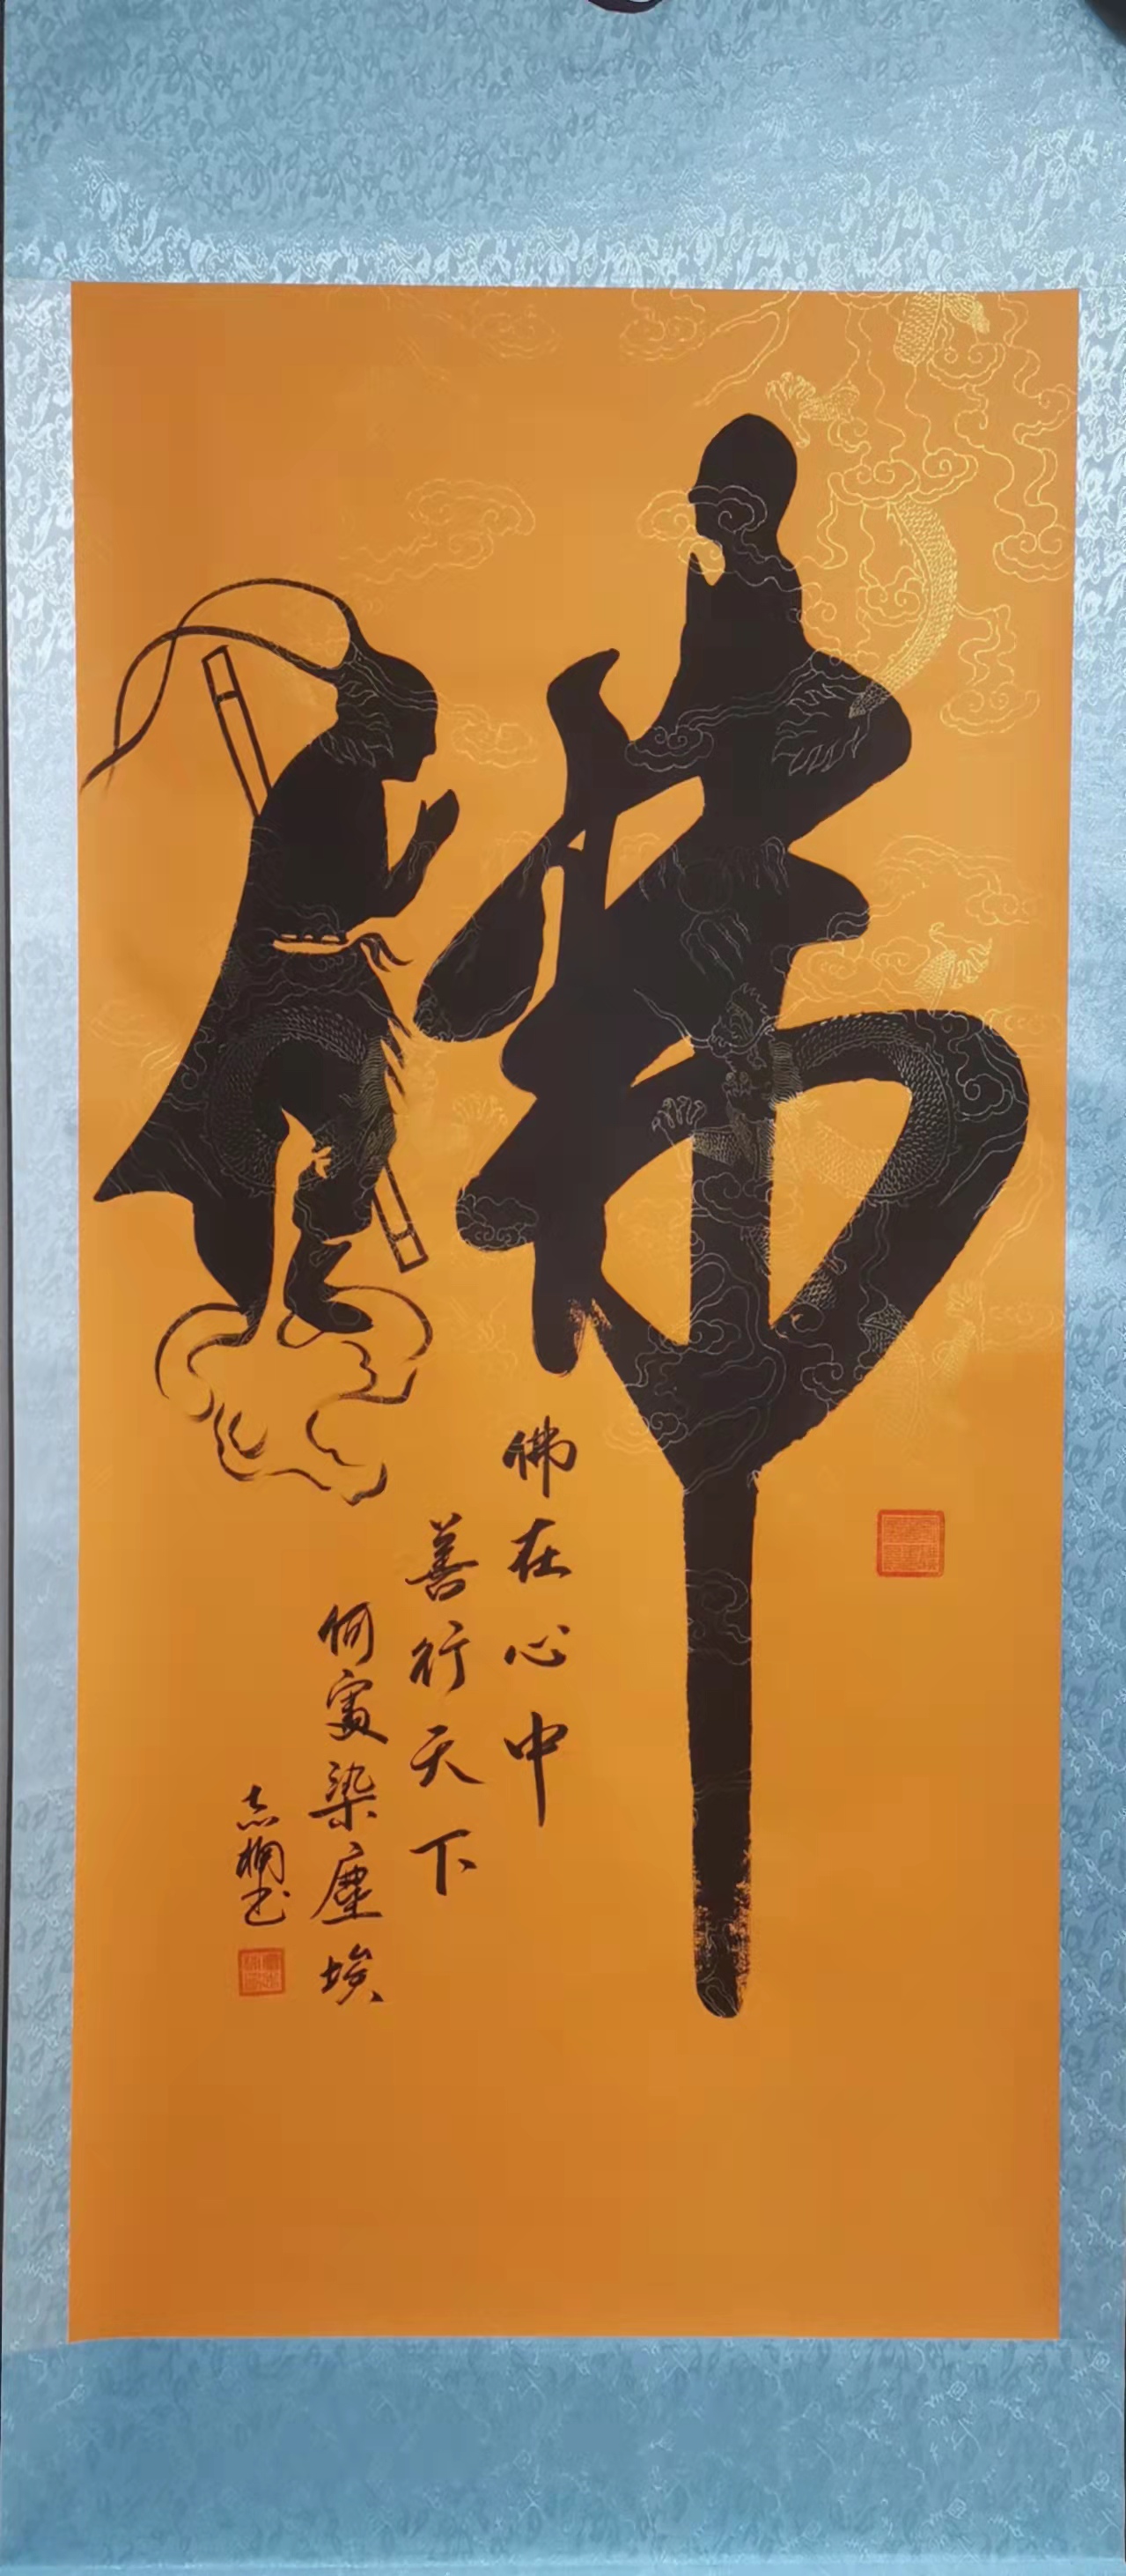 佛
佛在心中
善行天下
何處染塵埃
志书